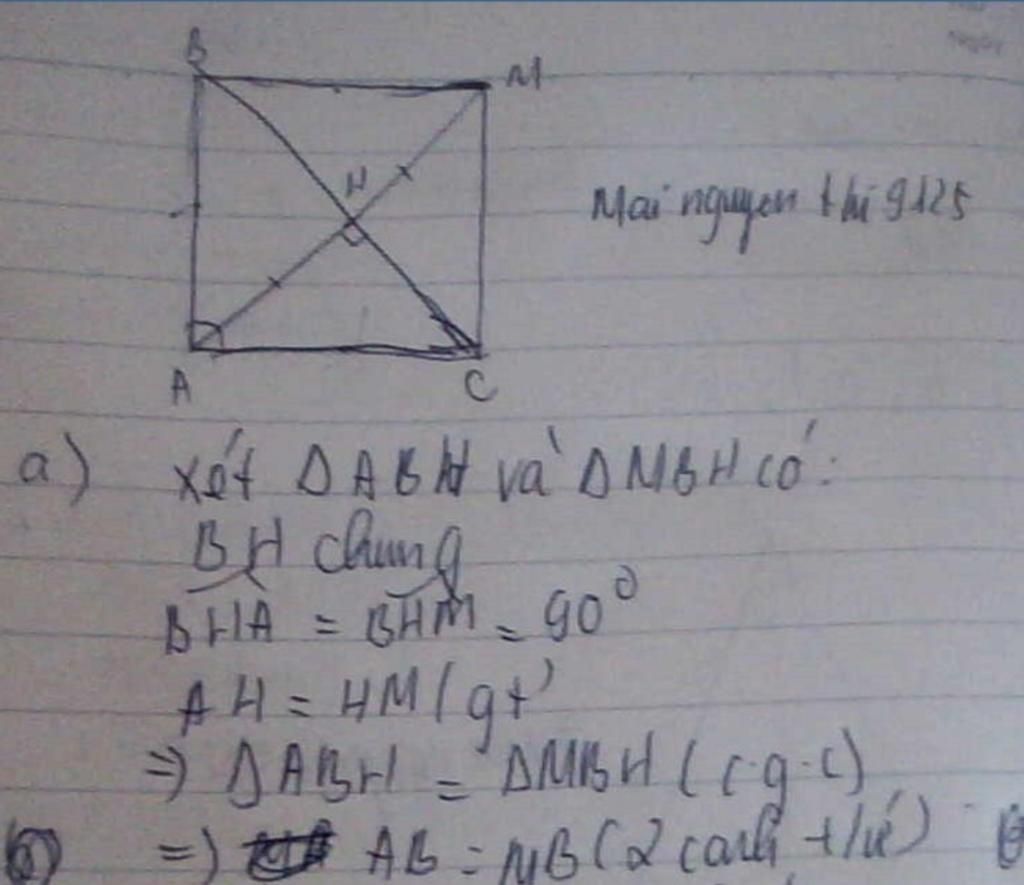 B
M
H
Mai nguyen thi 9125
A
C
a) Xét ΔABH và ΔMBH có:
BH chung
BHA = BHM = 90°
AH = HM (gt)
=> ΔABH = ΔMBH (c.g.c)
b) => AB = MB (2 cạnh t/ứ)